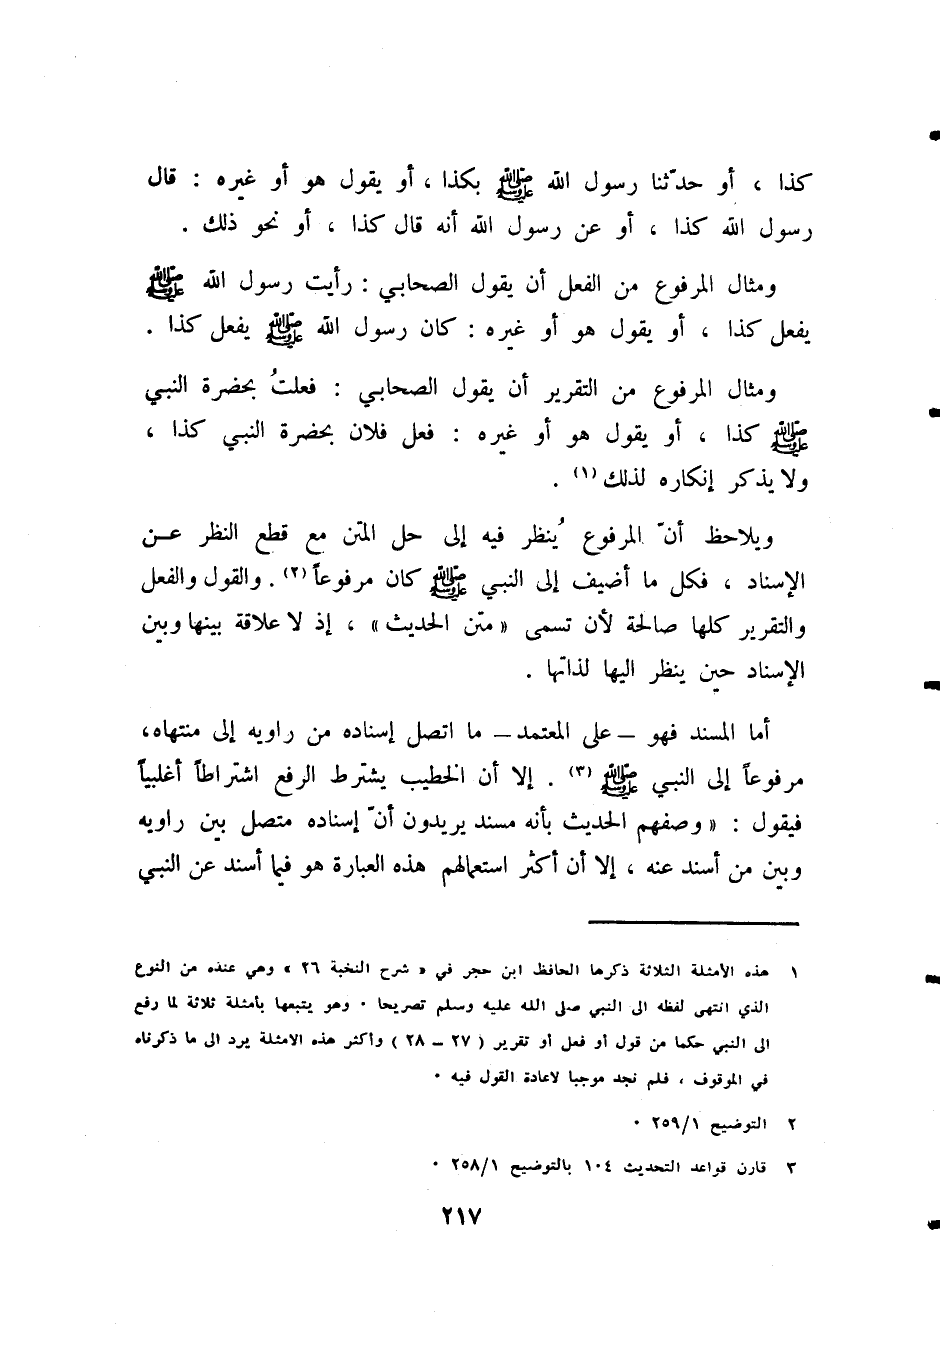 كذا ، أو حدّثنا رسول الله ﷺ بكذا ، أو يقول هو أو غيره : قال
رسول الله كذا ، أو عن رسول الله أنه قال كذا ، أو نحو ذلك .
ومثال المرفوع من الفعل أن يقول الصحابي : رأيت رسول الله ﷺ
يفعل كذا ، أو يقول هو أو غيره : كان رسول الله ﷺ يفعل كذا .
ومثال المرفوع من التقرير أن يقول الصحابي : فعلتُ بحضرة النبي
ﷺ كذا ، أو يقول هو أو غيره : فعل فلان بحضرة النبي كذا ،
ولا يذكر إنكاره لذلك (١) .
ويلاحظ أنّ المرفوع يُنظر فيه إلى حل المتن مع قطع النظر عــن
الإسناد ، فكل ما أضيف إلى النبي ﷺ كان مرفوعاً (٢) . والقول والفعل
والتقرير كلها صالحة لأن تسمى « متن الحديث » ، إذ لا علاقة بينها وبين
الإسناد حين ينظر اليها لذاتها .
أما المسند فهو ــ على المعتمد ــ ما اتصل إسناده من راويه إلى منتهاه،
مرفوعاً إلى النبي ﷺ (٣) . إلا أن الخطيب يشترط الرفع اشتراطاً أغلبياً
فيقول : « وصفهم الحديث بأنه مسند يريدون أنّ إسناده متصل بين راويه
وبين من أسند عنه ، إلا أن أكثر استعمالهم هذه العبارة هو فيما أسند عن النبي
١ هذه الأمثلة الثلاثة ذكرها الحافظ ابن حجر في « شرح النخبة ٢٦ » وهي عنده من النوع
الذي انتهى لفظه الى النبي صلى الله عليه وسلم تصريحا ٠ وهو يتبعها بأمثلة ثلاثة لما رفع
الى النبي حكما من قول أو فعل أو تقرير ( ٢٧ ــ ٢٨ ) وأكثر هذه الامثلة يرد الى ما ذكرناه
في الموقوف ، فلم نجد موجبا لاعادة القول فيه ٠
٢ التوضيح ٢٥٩/١ ٠
٣ قارن قواعد التحديث ١٠٤ بالتوضيح ٢٥٨/١ ٠
٢١٧